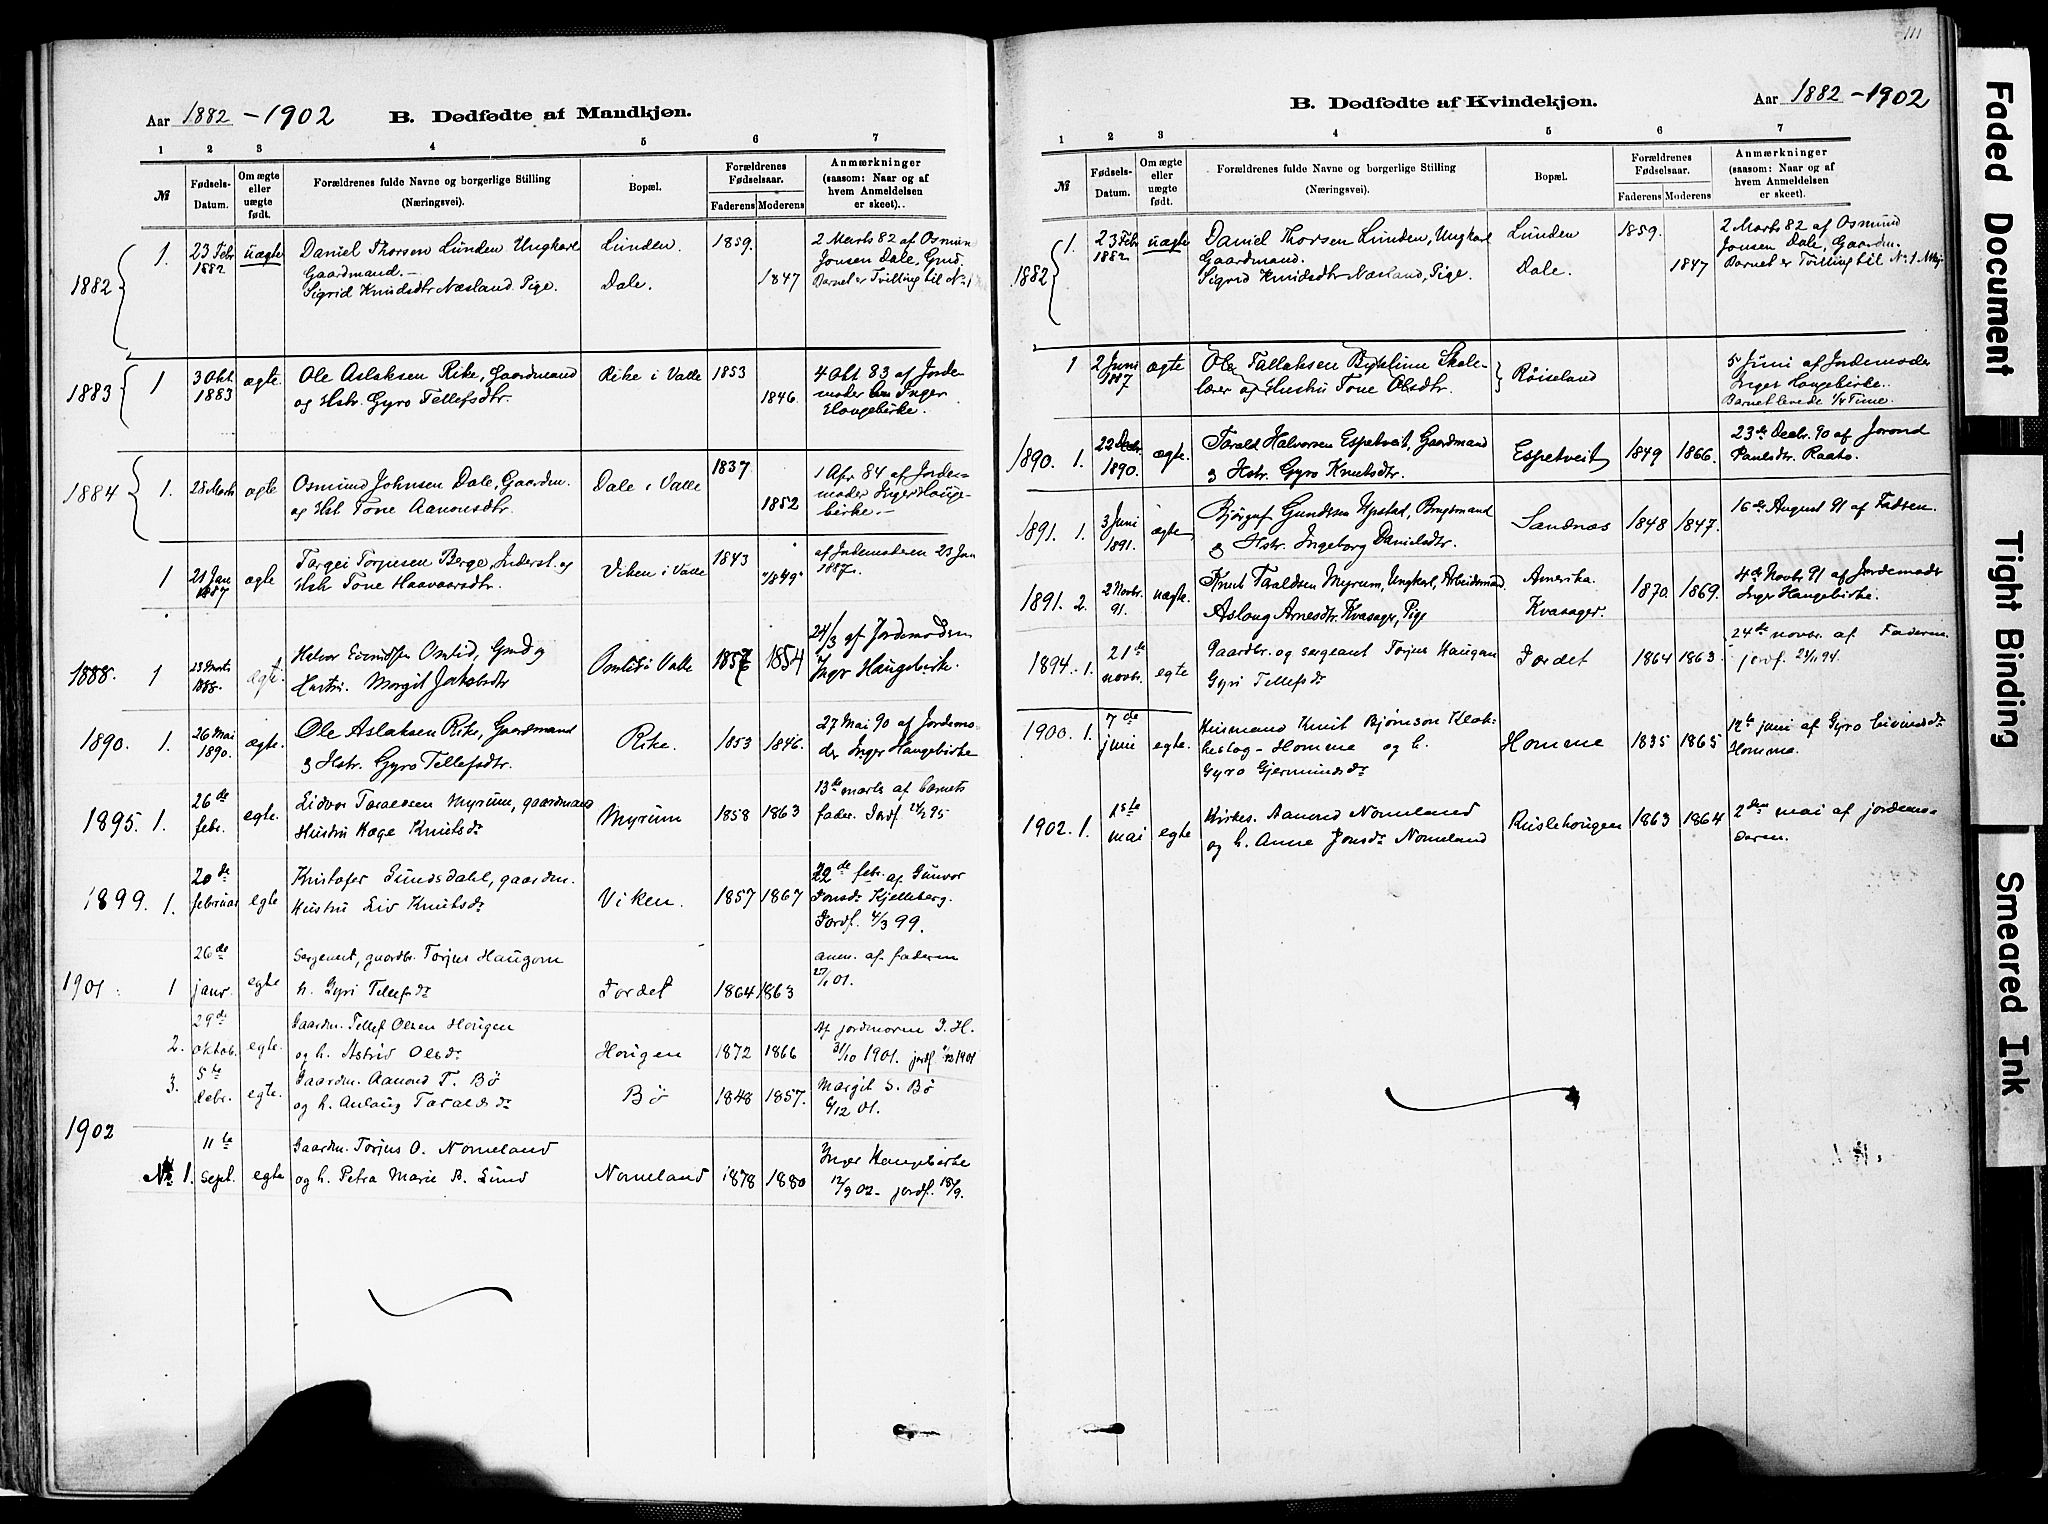 111
Aar 1882 - 1902 B. Dødfødte af Mandkjøn.
1 2 3 4 5 6 7
№ Fødsels-Datum. Om ægte eller uægte født. Forældrenes fulde Navne og borgerlige Stilling (Næringsvei). Bopæl. Forældrenes Fødselsaar. Faderens Moderens Anmærkninger (saasom: Naar og af hvem Anmeldelsen er skeet)..
1882 1. 23 Febr 1882 uægte Daniel Thorsen Lunden Ungkarl Lunden. 1859. 2 Marts 82 af Osmun
Gaardmand.- Jonsen Dale, Gmd.
Sigrid Knudsdtr Næsland. Pige. Dale. 1847 Barnet er Tvilling til No 1
1883 1 3 Okt 1883 ægte. Ole Aslaksen Rike, Gaardmand Rike i Valle 1853 4 Okt 83 af Jorde-
og Hstr. Gyro Tellefsdtr. 1846. moder Inger
Haugebirke.
1884 1. 28 Marts ægte Osmund Johnsen Dale, Gaardm. Dale i Valle 1837 1 Apr 84 af Jorde-
og Hst Tone Aanonsdtr. 1852 moder Inger Hauge-
birke.-
1 21 Jan 1887 ægte Targei Torjusen Berge, Inderst. og Viken i Valle 1843 af Jordemoderen 23 Jan
Hst Tone Haavaarsdtr. 1849 1887.
1888. 1 23 Marts 1888. ægte. Halvor Eivindsen Omlid, Gmd og Omlid i Valle 1857 1854 24/3 af Jordemoderen
Hustru. Margit Jakobsdtr Inger Haugebirke.
1890. 1. 26 Mai 1890. ægte. Ole Aslaksen Rike, Gaardmand Rike. 1853 1846. 27 Mai 90 af Jordemo-
& Hstr. Gyro Tellefsdtr. der Inger Haugebirke
1895. 1. 26de febr. egte. Eidvor Taraldsen Myrum, gaardmand Myrum 1858 1863 13de marts af barnets
Hustru Hæge Knutsdr fader. Jordf. 24/2 95
1899. 1. 20de februar egte Kristofer Sundsdahl, gaardm. Viken. 1857 1867 22de febr. af Gunvor
Hustru Liv Knutsdr Jonsdr Kjelleberg.
Jordf. 4/3 99.
1901. 1 26de janr. egte Sergeant, gaardbr. Torjus Haugom Jordet 1864 1863 anm. af faderen
h. Gyri Tellefsdr 27/1 01.
2. 29de oktob. egte. Gaardm. Tellef Olsen Hougen Hougen 1872 1866 Af jordmoren I. H.
og h. Astrid Olsdr 31/10 1901. jordf 1/12 1901
3. 5te debr. egte. Gaardm. Aanond T. Bø Bø 1848 1857. Margit S. Bø
og h. Anlaug Taraldsdr 6/12 01.
1902
№ 1. 11te sept. egte Gaardm. Torjus O. Nomeland Nomeland 1878 1880 Inger Haugebirke
og h. Petra Marie B. Lund 12/9 02- jordf. 18/9.
B. Dødfødte af Kvindekjøn. Aar 1882 - 1902
1 2 3 4 5 6 7
№ Fødsels-Datum. Om ægte eller uægte født. Forældrenes fulde Navne og borgerlige Stilling (Næringsvei). Bopæl. Forældrenes Fødselsaar. Faderens Moderens Anmærkninger (saasom: Naar og af hvem Anmeldelsen er skeet).
1882 1. 23 Febr 1882. uægte Daniel Thorsen Lunden, Ungkarl Lunden 1859. 2 Marts 82 af Osmund
Gaardmand. Jonsen Dale, Gaardm.
Sigrid Knudsdtr Næsland, Pige. Dale. 1847 Barnet er Tvilling til No 1
1 2 Juni 1887 ægte Ole Tallaksen Skole- Røiseland 5 Juni af Jordemoder
lærer og Hustru Tone Olsdtr. Inger Haugebirke.
Barnet levede 1/4 Time.
1890. 1. 22 Decbr. 1890. ægte. Tarald Halvorsen Espetveit, Gaardmand Espetveit 1849 1866. 23de Decbr. 90 af Jorond
& Hstr. Gyro Knutsdtr. Paulsdtr. Raabo.
1891. 1. 3 Juni 1891. ægte Bjørguf Gundersen Upstad, Brugsmand Sandnæs 1848 1847. 16de August 91 af Fadren.
& Hstr. Ingeborg Danielsdtr.
1891. 2. 2 Novbr. 91. uægte. Knut Taraldsen Myrum, Ungkarl, Arbeidsmand Amerika. 1870. 1869. 4de Novbr. 91 af Jordemodr
Aslaug Arnesdtr. Kvasager, Pige Kvasager. Inger Haugebirke.
1894. 1. 21de novbr. egte Gaardbr. og sergeant Torjus Haugom Jordet 1864 1863. 24de novbr. af Faderen
Gyri Tellefsdr jordf. 24/11 94.
1900. 1. 7de juni egte. Husmand Knut Bjørnson Klok- Homme 1835 1865 12te juni af Gyro Eivindsdr
heslog - Homme og h. Homme.
Gyro Gjermundsdr
1902. 1. 1ste mai egte Kirkes. Aanond Nomeland Rislehougen 1863 1864 2den mai af jordemo-
og h. Anne Jonsdr Nomeland deren.
Faded Document
Tight Binding
Smeared Ink